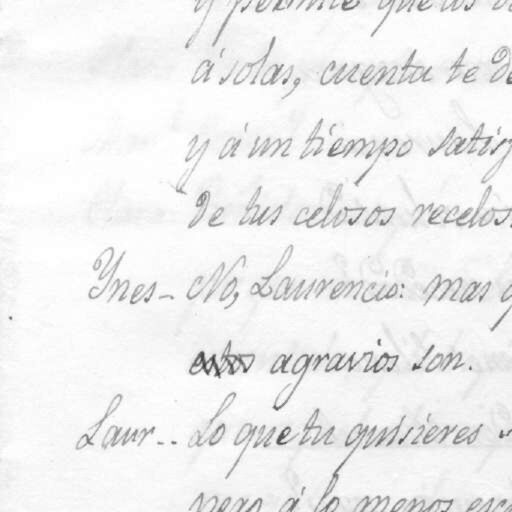 y permite que los
á solas, cuenta te de
y á un tiempo satisf
de tus celosos recelos.
Ynes- No, Laurencio: mas q
estos agravios son.
Laur-- Lo que tu quisieres
pero á lo menos esc